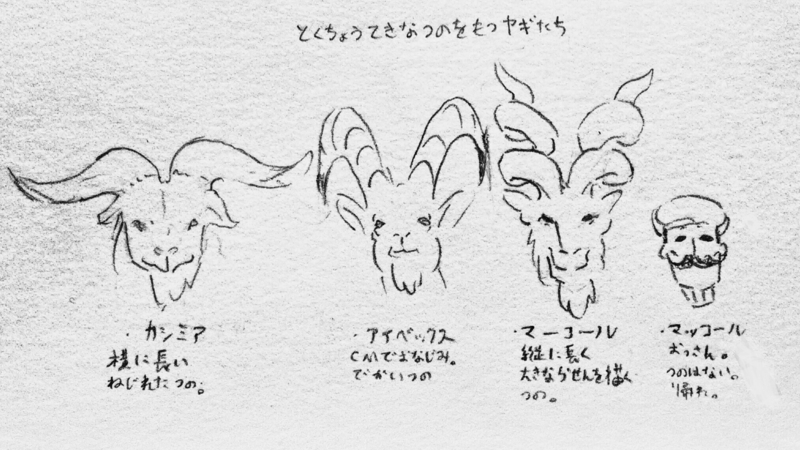 とくちょうてきなつのをもつヤギたち
・カシミア
横に長い
ねじれたつの。
・アイベックス
CMでおなじみ。
でかいつの
・マーコール
縦に長く
大きならせんを描く
つの。
・マッコール
おっさん。
つのはない。
帰れ。